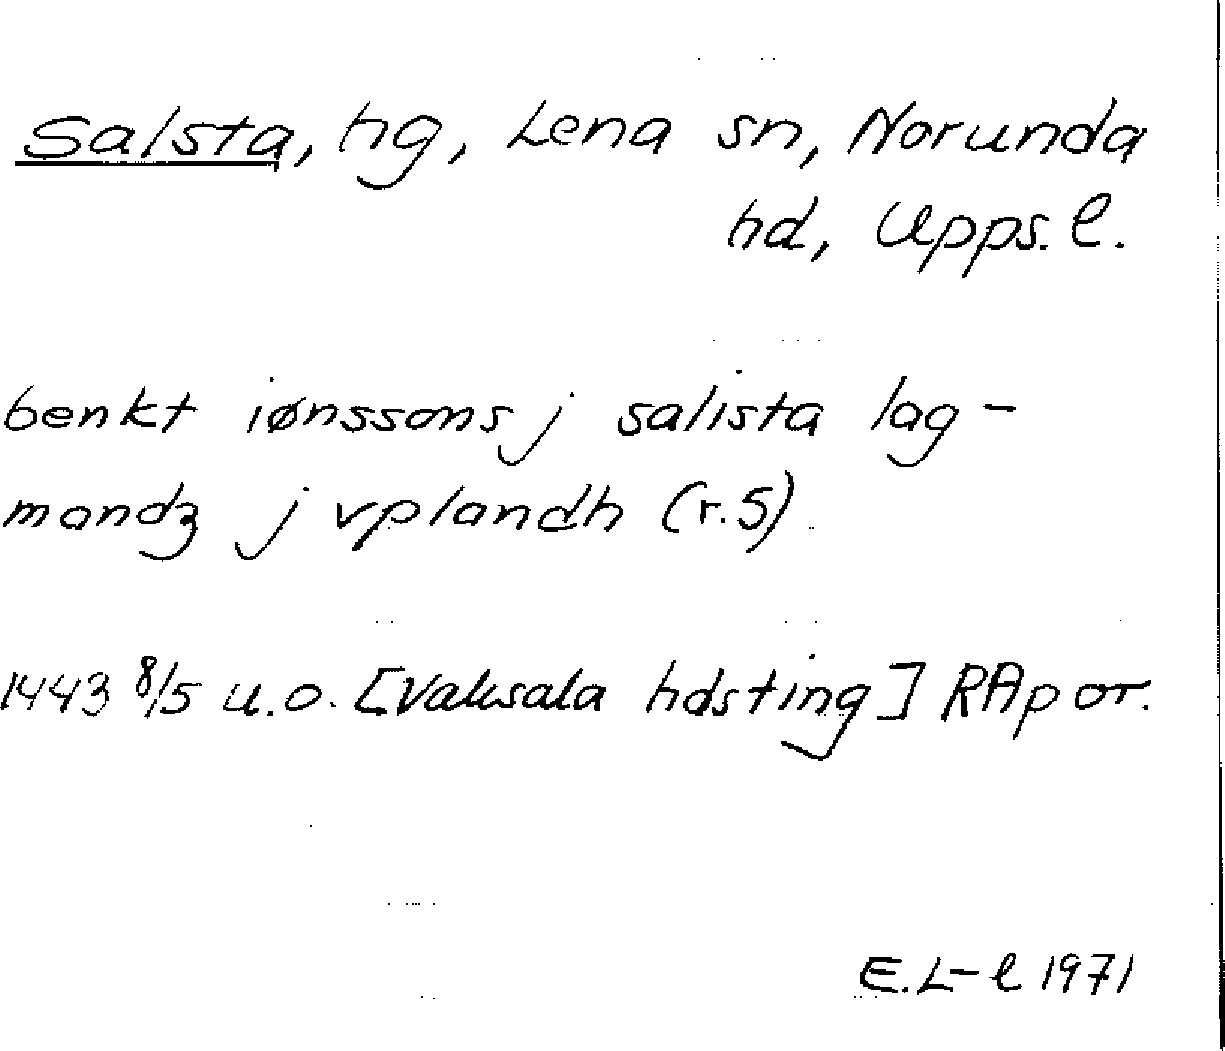 Salsta, hg, Lena sn, Norunda
hd, Upps. l.
benkt iønssons j salista lag-
mandz j vplandh (r.5)
1443 8/5 u.o. [Vaksala hdsting] RAp or.
E.L-l 1971